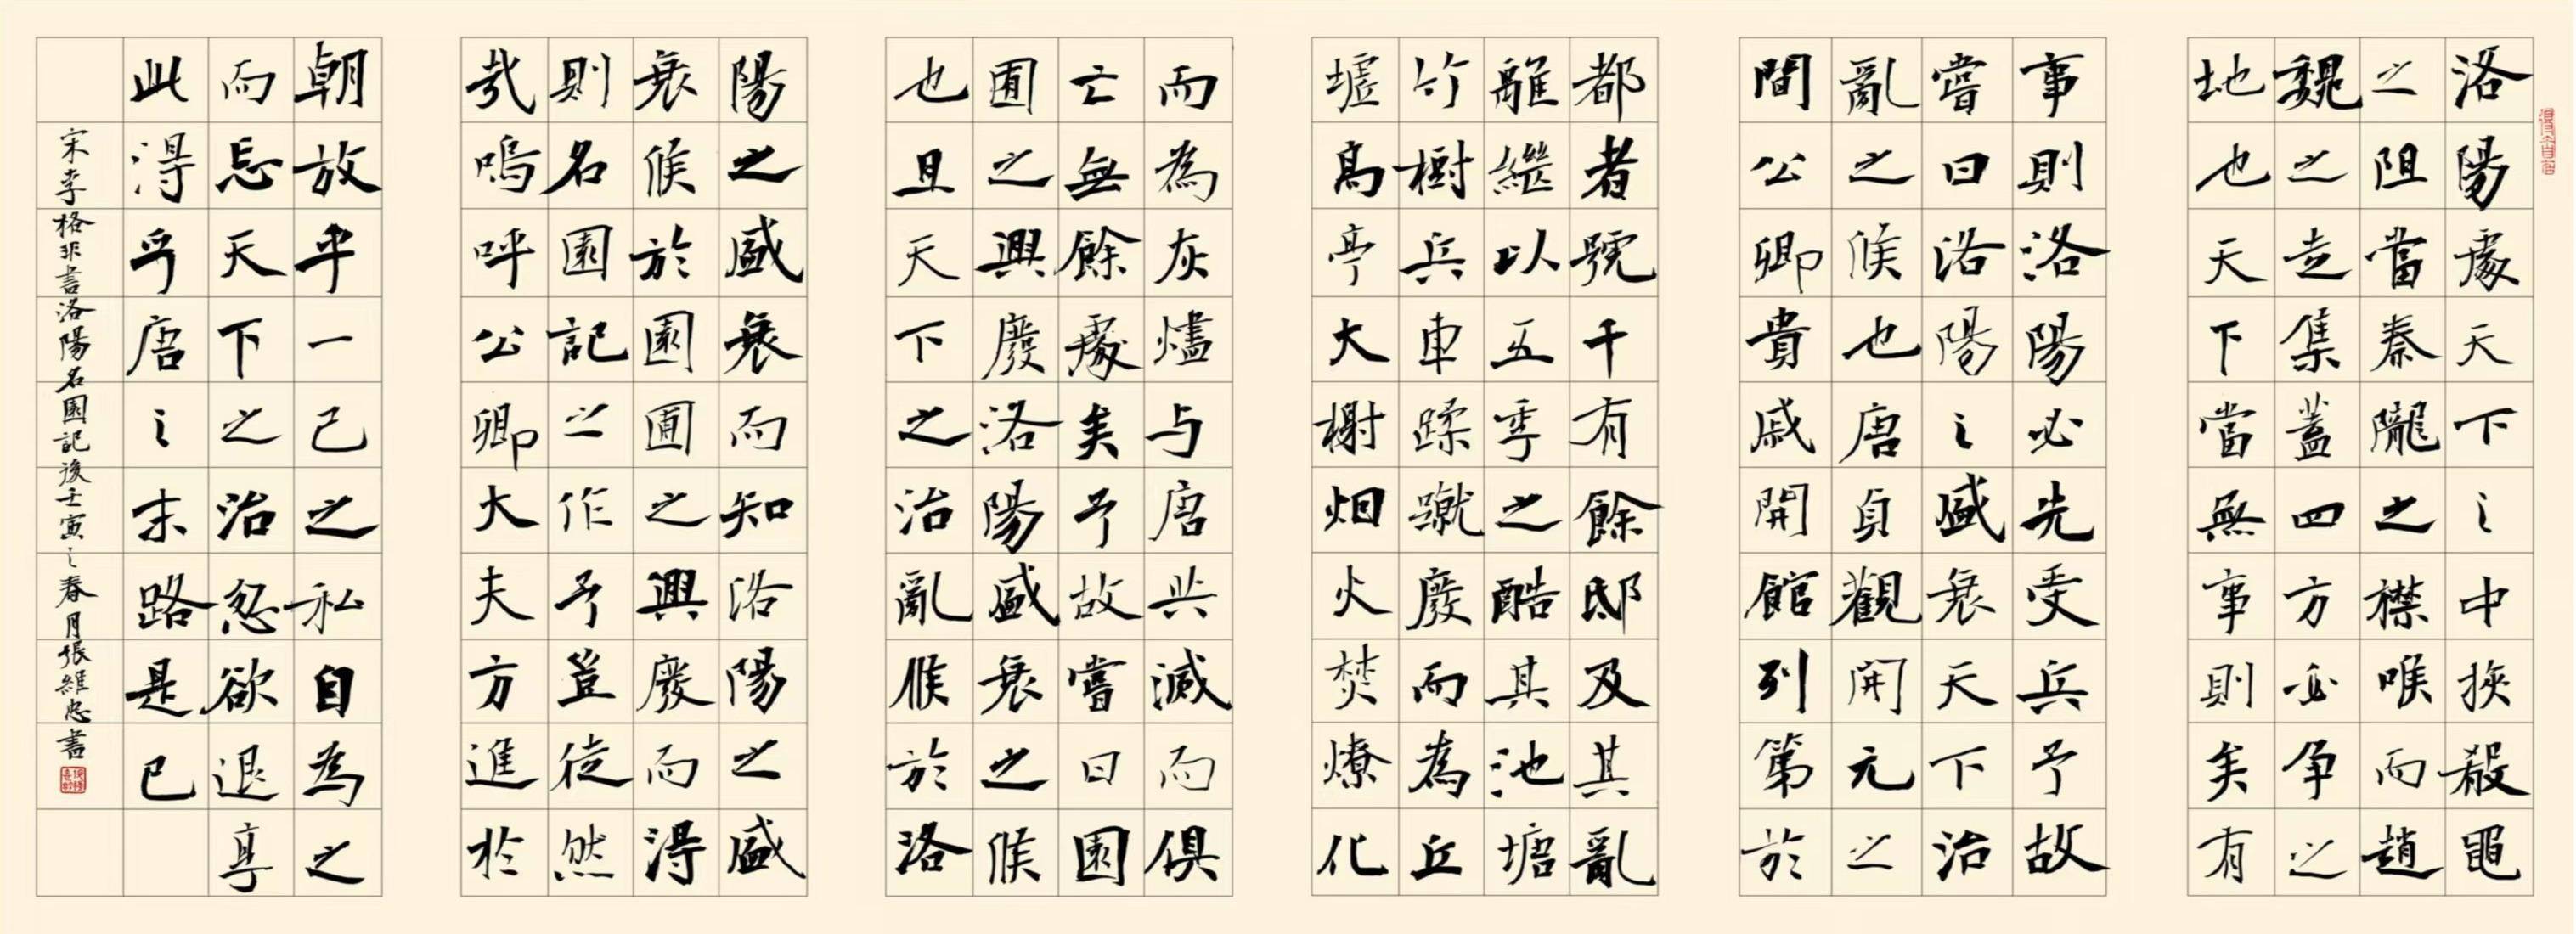 洛陽處天下之中挾殽黽
之阻當秦隴之襟喉而趙
魏之走集蓋四方必爭之
地也天下當無事則矣有
事則洛陽必先受兵予故
嘗曰洛陽之盛衰天下治
亂之候也唐貞觀開元之
間公卿貴戚開館列第於
都者號千有餘邸及其亂
離繼以五季之酷其池塘
竹樹兵車蹂蹴廢而為丘
墟高亭大榭烟火焚燎化
而為灰燼与唐共滅而俱
亡無餘處矣予故嘗曰園
圃之興廢洛陽盛衰之候
也且天下之治亂候於洛
陽之盛衰而知洛陽之盛
衰候於園圃之興廢而得
則名園記之作予豈徒然
哉嗚呼公卿大夫方進於
朝放乎一己之私自為之
而忘天下之治忽欲退享
此得乎唐之末路是已
宋李格非書洛陽名園記後壬寅之春月張維忠書